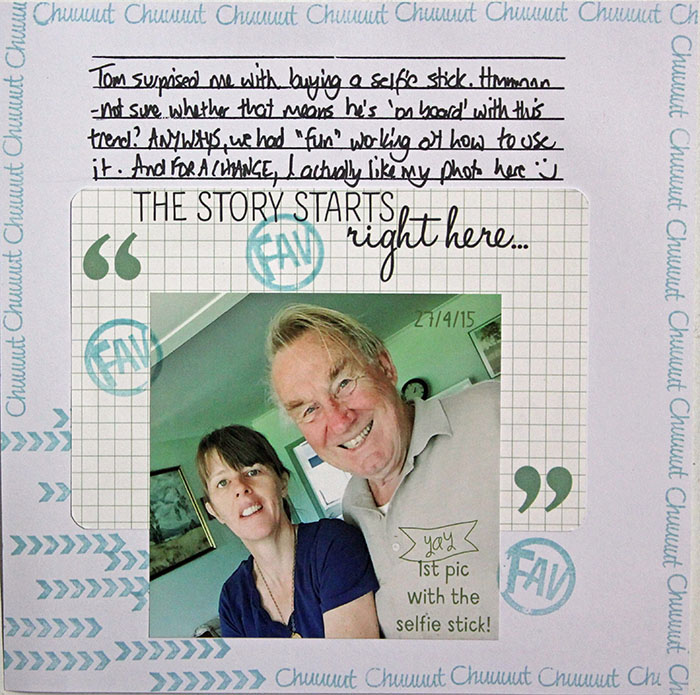 Chuuuut Chuuuut Chuuuut Chuuuut Chuuuut Chuuuut Chuuuut
Tom surprised me with buying a selfie stick. Hmmmnnn
-not sure whether that means he's 'on board' with this
trend? ANYWAYS, we had "fun" working out how to use
it. And FOR A CHANGE, I actually like my photo here :)
THE STORY STARTS
right here...
“
FAV
FAV
27/4/15
”
yay
1st pic
with the
selfie stick!
FAV
Chuuuut Chuuuut Chuuuut Chuuuut Chuuuut